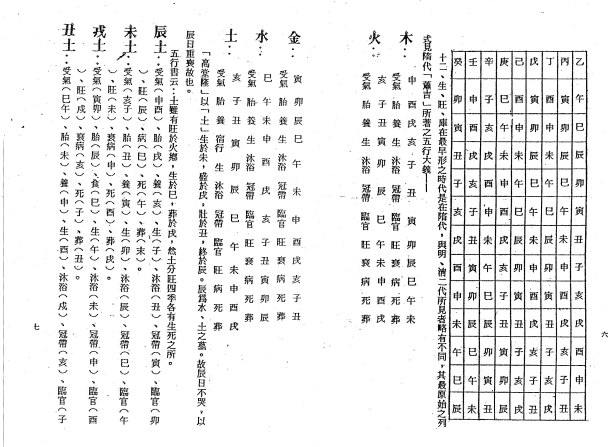 六
乙 午 巳 辰 卯 寅 丑 子 亥 戌 酉 申 未
丙 寅 卯 辰 巳 午 未 申 酉 戌 亥 子 丑
丁 酉 申 未 午 巳 辰 卯 寅 丑 子 亥 戌
戊 寅 卯 辰 巳 午 未 申 酉 戌 亥 子 丑
己 酉 申 未 午 巳 辰 卯 寅 丑 子 亥 戌
庚 巳 午 未 申 酉 戌 亥 子 丑 寅 卯 辰
辛 子 亥 戌 酉 申 未 午 巳 辰 卯 寅 丑
壬 申 酉 戌 亥 子 丑 寅 卯 辰 巳 午 未
癸 卯 寅 丑 子 亥 戌 酉 申 未 午 巳 辰
十二、生、旺、庫在最早形之時代是在隋代,與明、清二代所見者略有不同,其最原始之列
式見隋代「蕭吉」所著之五行大義——
申 酉 戌 亥 子 丑 寅 卯 辰 巳 午 未
木:受氣 胎 養 生 沐浴 冠帶 臨官 旺 衰 病 死 葬
亥 子 丑 寅 卯 辰 巳 午 未 申 酉 戌
火:受氣 胎 養 生 沐浴 冠帶 臨官 旺 衰 病 死 葬
寅 卯 辰 巳 午 未 申 酉 戌 亥 子 丑
金:受氣 胎 養 生 沐浴 冠帶 臨官 旺 衰 病 死 葬
巳 午 未 申 酉 戌 亥 子 丑 寅 卯 辰
水:受氣 胎 養 生 沐浴 冠帶 臨官 旺 衰 病 死 葬
亥 子 丑 寅 卯 辰 巳 午 未 申 酉 戌
土:受氣 胎 養 行 生 沐浴 冠帶 臨官 旺 衰 病 死 葬
「高堂隆」以「土」生於未,盛於戌,壯於丑,終於辰。辰爲水、土之墓。故辰日不哭,以
辰日重喪故也。
五行書云:土雖有旺於火鄉,生於巳,葬於戌,然土分旺四季各有生死之所。
辰土:受氣(申酉)、胎(戌)、養(亥)、生(子)、沐浴(丑)、冠帶(寅)、臨官(卯
)、旺(辰)、衰病(巳)、死(午)、葬(未)。
未土:受氣(亥子)、胎(丑)、養(寅)、生(卯)、沐浴(辰)、冠帶(巳)、臨官(午
)、旺(未)、衰病(申)、死(酉)、葬(戌)。
戌土:受氣(寅卯)、胎(辰)、養(巳)、生(午)、沐浴(未)、冠帶(申)、臨官(酉
)、旺(戌)、衰病(亥)、死(子)、葬(丑)。
丑土:受氣(巳午)、胎(未)、養(申)、生(酉)、沐浴(戌)、冠帶(亥)、臨官(子
七